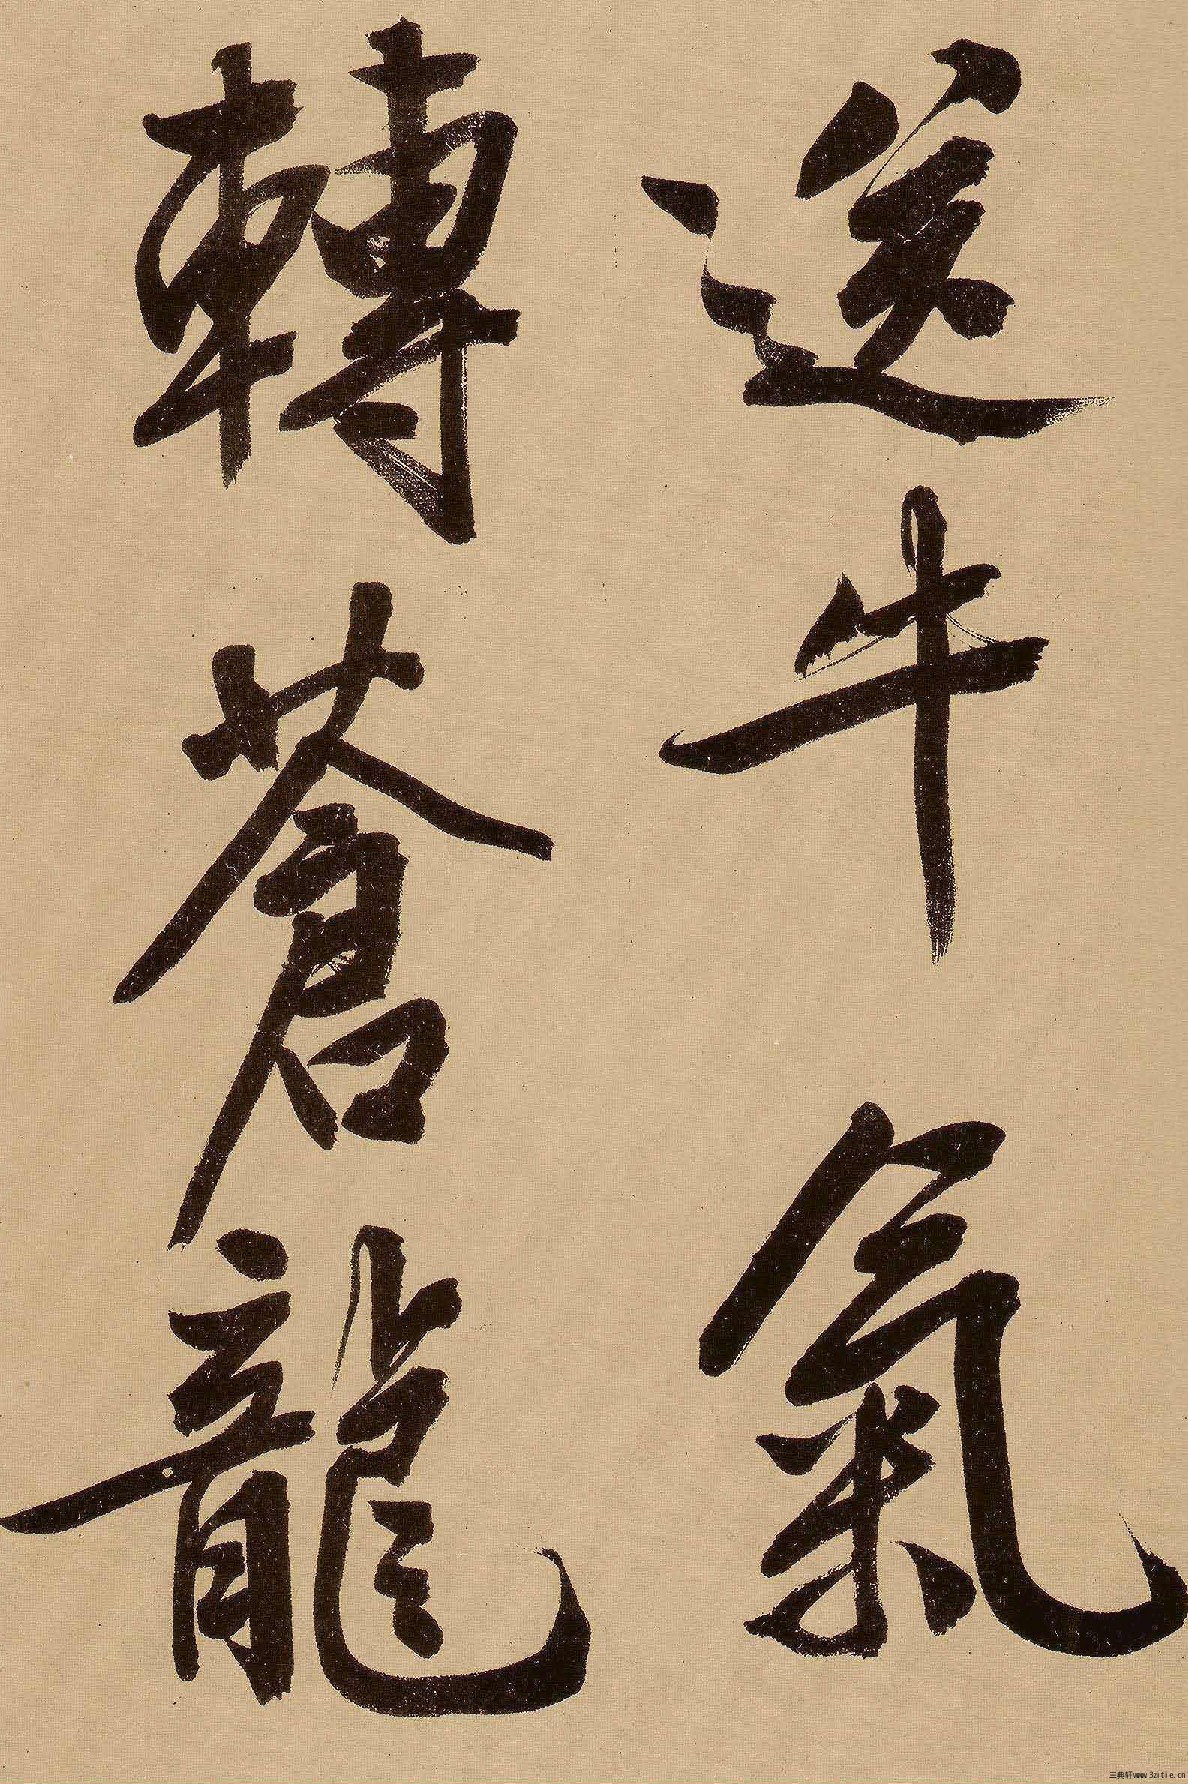 送牛氣
轉蒼龍
三典轩www.3zitie.cn